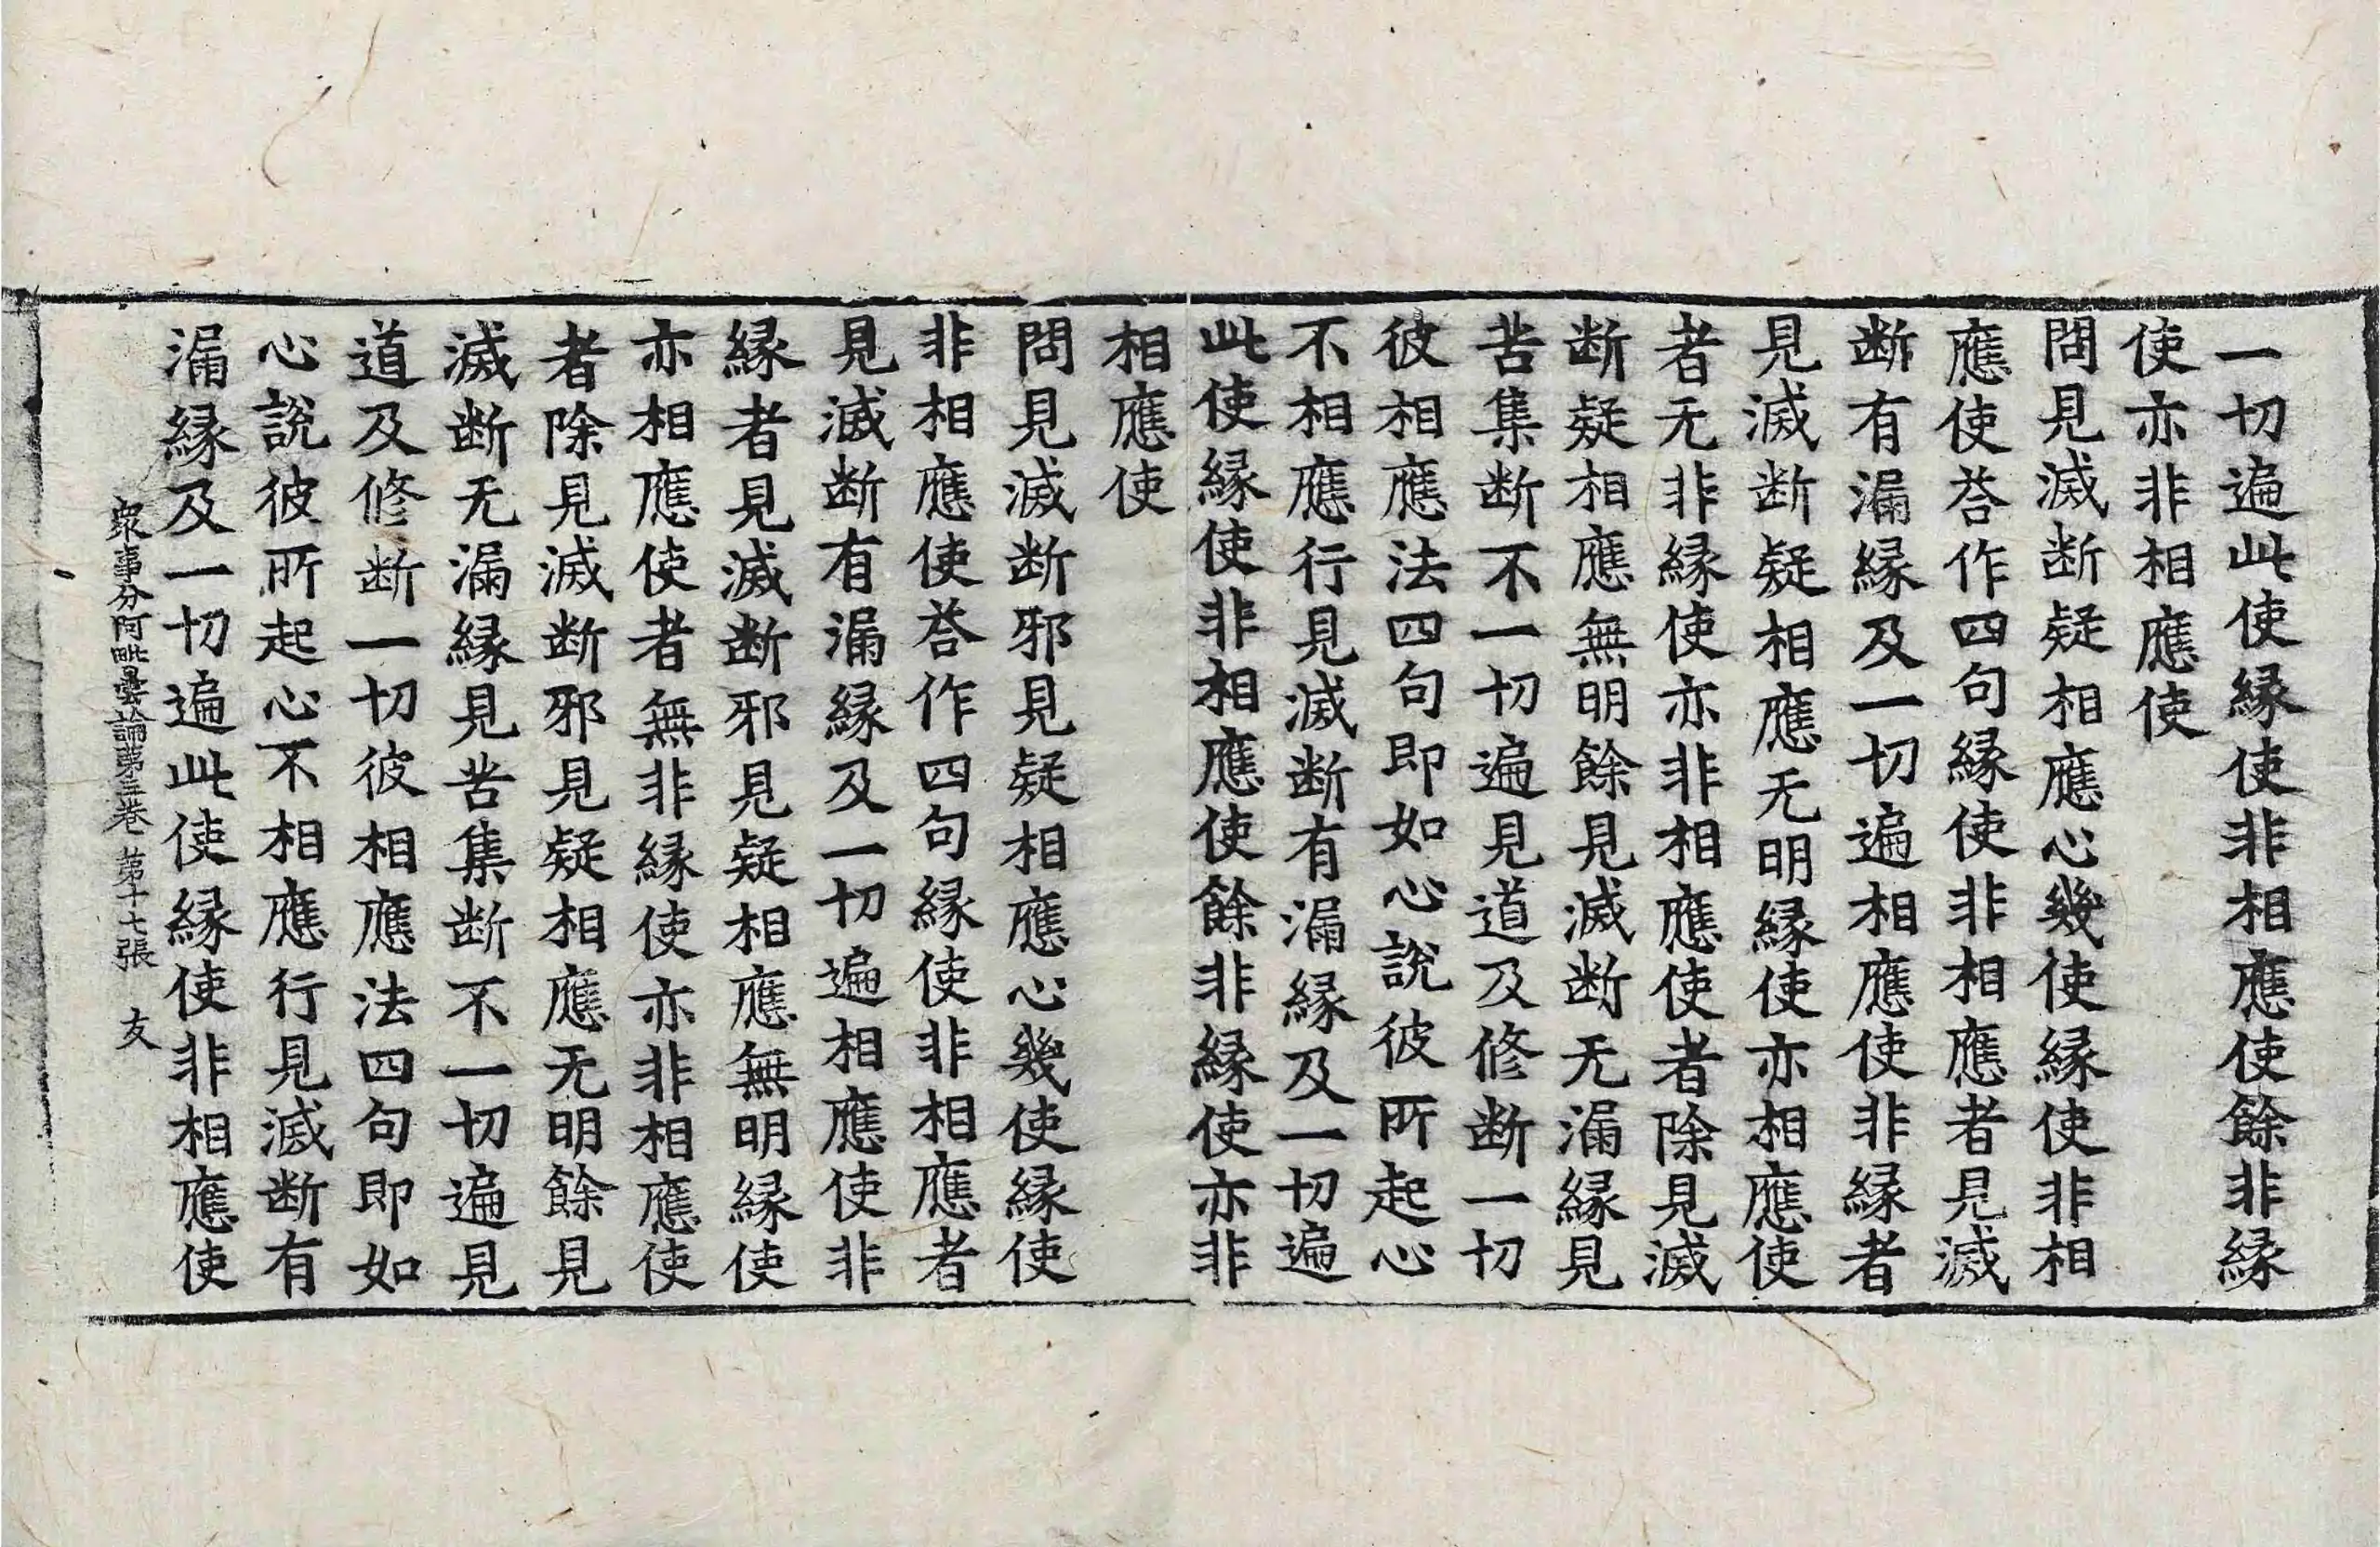 一切遍此使縁使非相應使餘非縁
使亦非相應使
問見滅断疑相應心幾使縁使非相
應使荅作四句縁使非相應者見滅
断有漏縁及一切遍相應使非縁者
見滅断疑相應无明縁使亦相應使
者无非縁使亦非相應使者除見滅
断疑相應無明餘見滅断无漏縁見
苦集断不一切遍見道及修断一切
彼相應法四句即如心說彼所起心
不相應行見滅断有漏縁及一切遍
此使縁使非相應使餘非縁使亦非
相應使
問見滅断邪見疑相應心幾使縁使
非相應使荅作四句縁使非相應者
見滅断有漏縁及一切遍相應使非
縁者見滅断邪見疑相應無明縁使
亦相應使者無非縁使亦非相應使
者除見滅断邪見疑相應无明餘見
滅断无漏縁見苦集断不一切遍見
道及修断一切彼相應法四句即如
心說彼所起心不相應行見滅断有
漏縁及一切遍此使縁使非相應使
衆事分阿毗曇論第三卷 第十七張 友